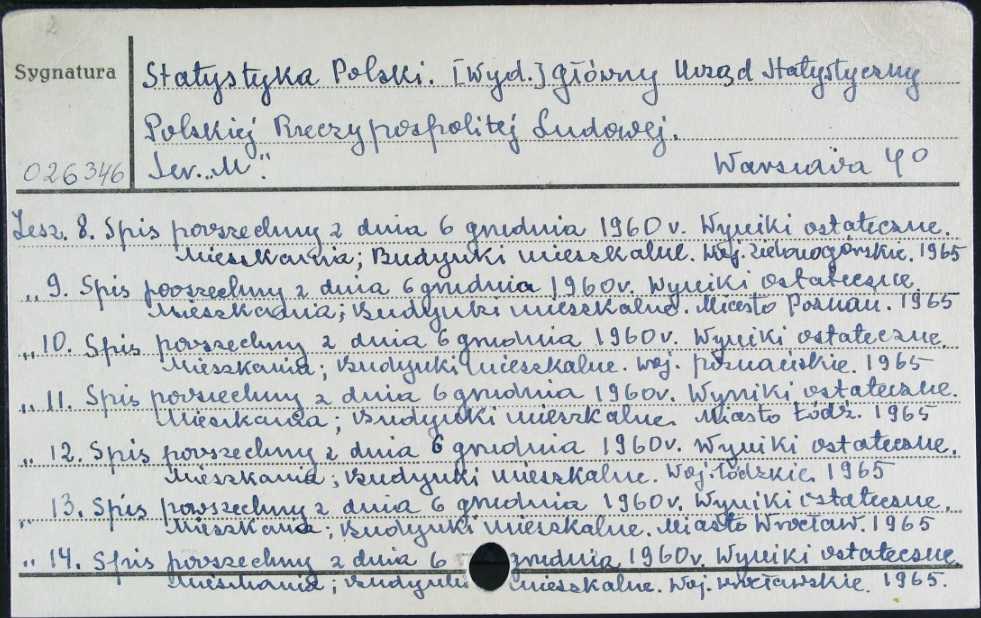 Sygnatura
026346
Statystyka Polski. [Wyd.] Główny Urząd Statystyczny
Polskiej Rzeczypospolitej Ludowej.
Ser. „M".
Warszawa 4°
Zesz. 8. Spis powszechny z dnia 6 grudnia 1960 r. Wyniki ostateczne.
Mieszkania; Budynki mieszkalne. Woj. zielonogórskie. 1965
„ 9. Spis powszechny z dnia 6 grudnia 1960 r. Wyniki ostateczne.
Mieszkania; Budynki mieszkalne. Miasto Poznań. 1965
„ 10. Spis powszechny z dnia 6 grudnia 1960 r. Wyniki ostateczne.
Mieszkania; Budynki mieszkalne. Woj. poznańskie. 1965
„ 11. Spis powszechny z dnia 6 grudnia 1960 r. Wyniki ostateczne.
Mieszkania; Budynki mieszkalne. Miasto Łódź. 1965
„ 12. Spis powszechny z dnia 6 grudnia 1960 r. Wyniki ostateczne.
Mieszkania; Budynki mieszkalne. Woj. łódzkie. 1965
„ 13. Spis powszechny z dnia 6 grudnia 1960 r. Wyniki ostateczne.
Mieszkania; Budynki mieszkalne. Miasto Wrocław. 1965
„ 14. Spis powszechny z dnia 6 grudnia 1960 r. Wyniki ostateczne.
Mieszkania; Budynki mieszkalne. Woj. wrocławskie. 1965.